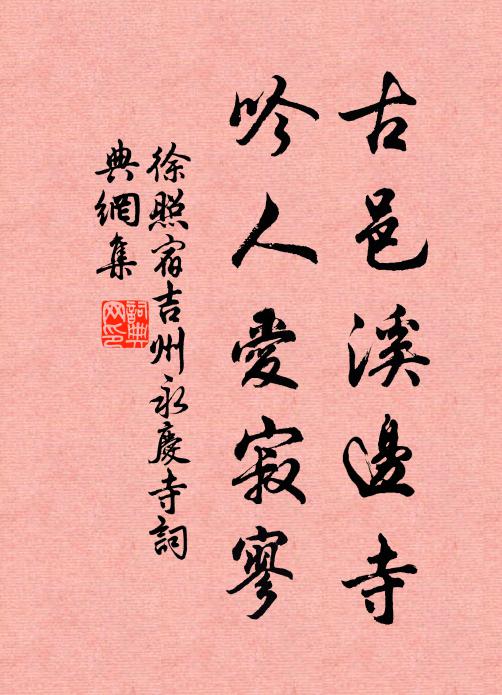 古邑溪邊寺
吟人愛寂寥
徐照宿吉州永慶寺詞
典網集
詞典
网印